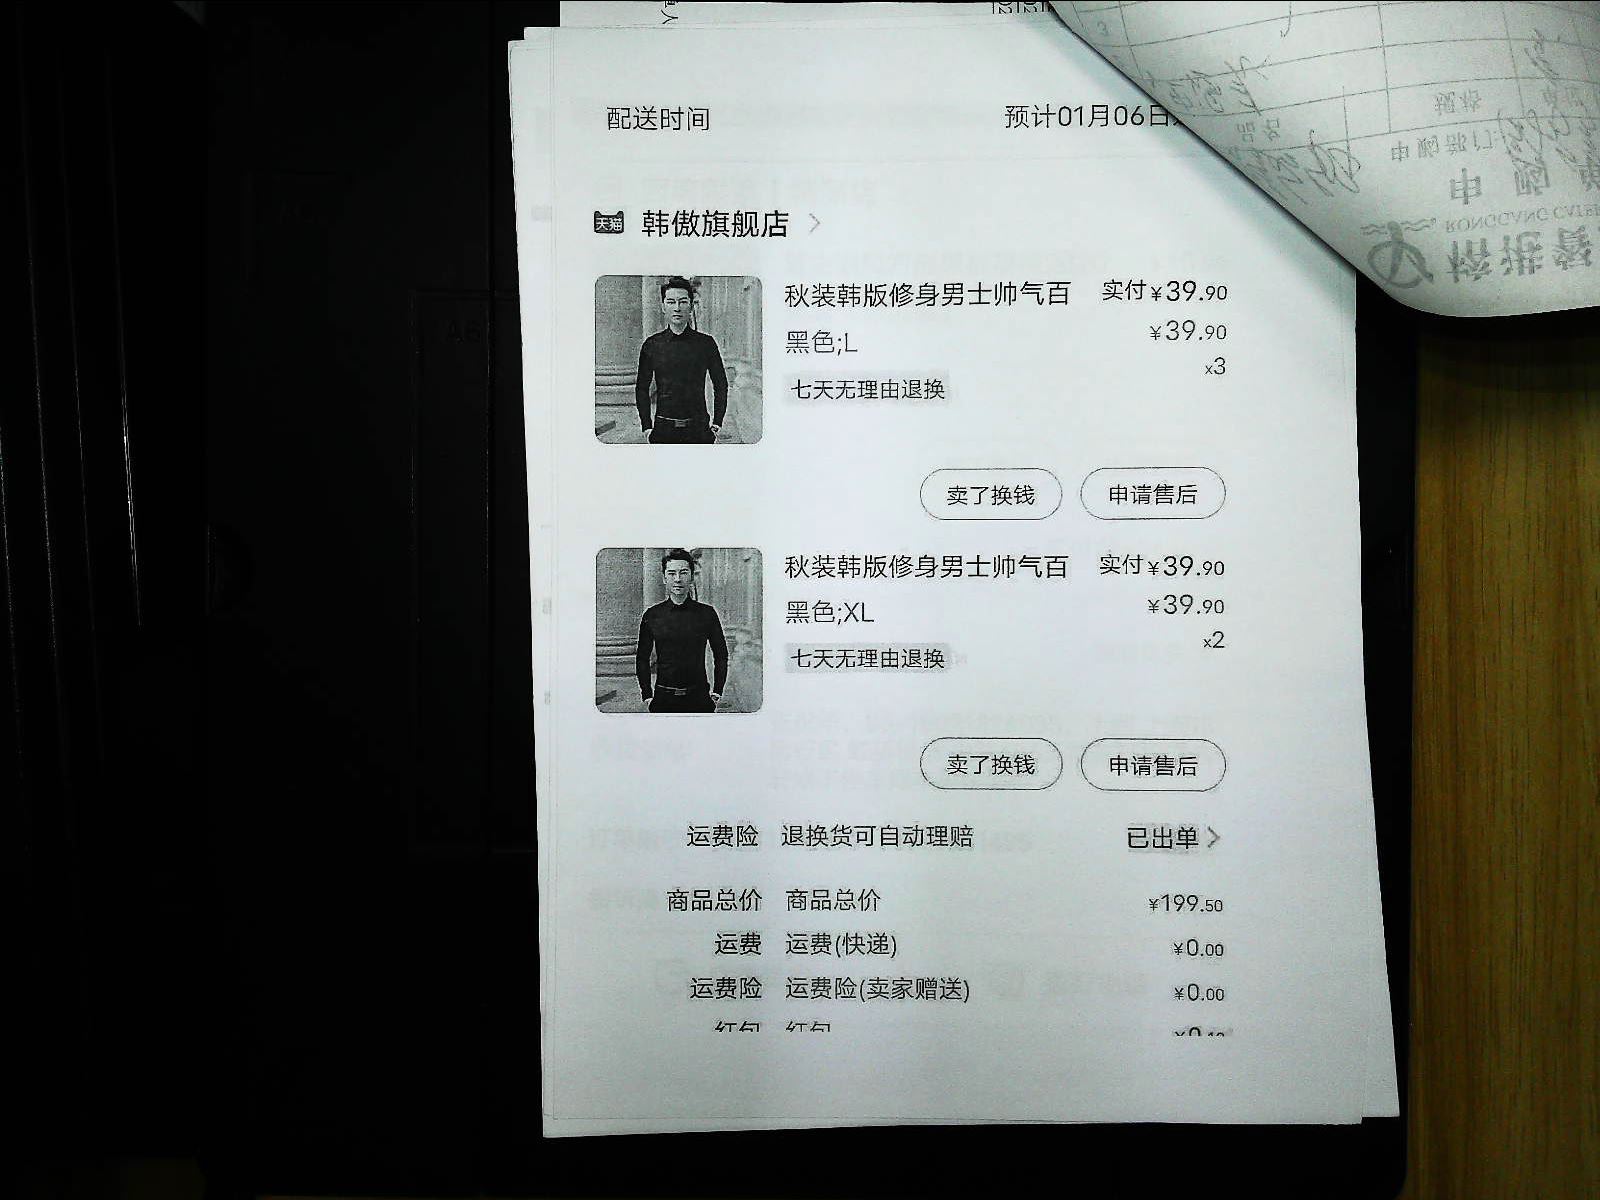 配送时间 预计01月06日
天猫 韩傲旗舰店 >
秋装韩版修身男士帅气百 实付¥39.90
黑色;L ¥39.90
x3
七天无理由退换
卖了换钱 申请售后
秋装韩版修身男士帅气百 实付¥39.90
黑色;XL ¥39.90
x2
七天无理由退换
卖了换钱 申请售后
运费险 退换货可自动理赔 已出单 >
商品总价 商品总价 ¥199.50
运费 运费(快递) ¥0.00
运费险 运费险(卖家赠送) ¥0.00
红包 红包
申购部门:
规格
品名
RONGGANG CATER